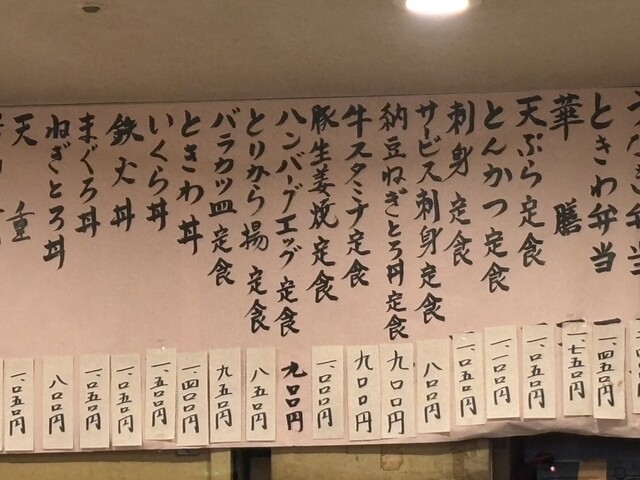 ときわ弁当 一、四五〇円
華膳 一、七五〇円
天ぷら定食 一、〇五〇円
とんかつ定食 一、一〇〇円
刺身定食 一、〇五〇円
サービス刺身定食 八〇〇円
納豆ねぎとろ丼定食 九〇〇円
牛スタミナ定食 九〇〇円
豚生姜焼定食 一、〇〇〇円
ハンバーグエッグ定食 九〇〇円
とりから揚定食 八五〇円
バラカツ皿定食 九五〇円
ときわ丼 一、四〇〇円
いくら丼 一、五〇〇円
鉄火丼 一、〇五〇円
まぐろ丼 一、〇五〇円
ねぎとろ丼 八〇〇円
天重 一、〇五〇円